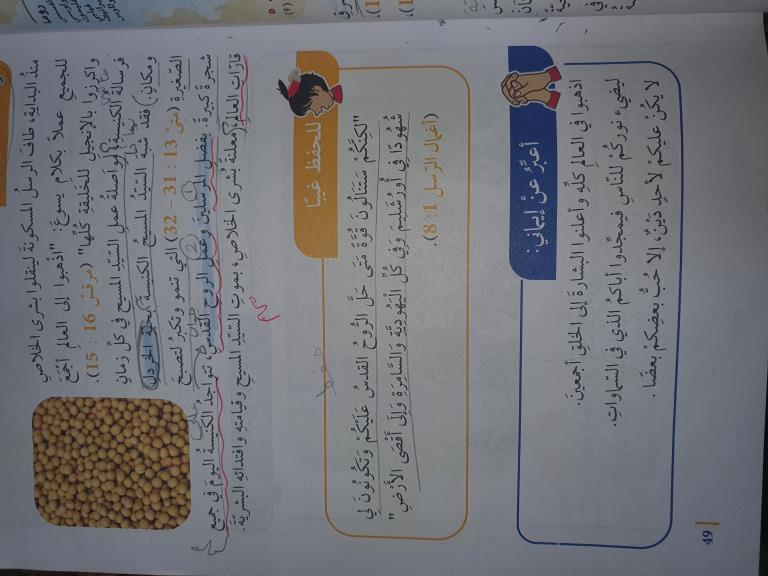 منذُ البدايةِ، طافَ الرسلُ المسكونةَ لينقلوا بشرى الخلاصِ
للجميعِ عملاً بكلامِ يسوعَ: "اذْهبوا إلى العالمِ أجمَعَ
واكرزوا بالإنجيلِ للخَليقةِ كلِّها" (مرقسُ 16 : 15).
فرسالةُ الكنيسةِ مواصلةُ عملِ السيّدِ المسيحِ في كلِّ زمانٍ
ومكانٍ. فقد شبّهَ السيّدُ المسيحُ الكنيسةَ بحبّةِ الخردلِ
الصّغيرةِ (متّى 13 : 31 – 32) التي تنمو وتكبرُ لتصبحَ
شجرةً كبيرةً. بفضلِ المرسلينَ وعملِ الروحِ القدسِ، تتواجدُ الكنيسةُ اليومَ في جميعِ
قارّاتِ العالمِ، معلنةً بُشرى الخلاصِ، بموتِ السيّدِ المسيحِ وقيامتِه وافتدائِه البشريّةَ.
للحفظِ غيبًا
"لكِنَّكُمْ سَتَنَالُونَ قُوَّةً مَتَى حَلَّ الرُّوحُ القُدُسُ عَلَيْكُمْ وَتَكُونُونَ لِي
شُهُودًا فِي أُورُشَلِيمَ وَفِي كُلِّ الْيَهُودِيَّةِ وَالسَّامِرَةِ وَإِلَى أَقْصَى الأَرْضِ"
(أعمالُ الرّسلِ 1 : 8).
أعبِّرُ عنْ إيماني:
اذهبوا في العالمِ كلِّهِ وأعلنوا البشارةَ إلى الخلقِ أجمعينَ.
ليضيءْ نورُكُمْ للنّاسِ فيمجّدوا أباكمُ الذي في السّماواتِ.
لا يكُنْ عليكمْ لأحدٍ دَيْنٌ، إلّا حُبُّ بعضِكمْ بعضًا.
49